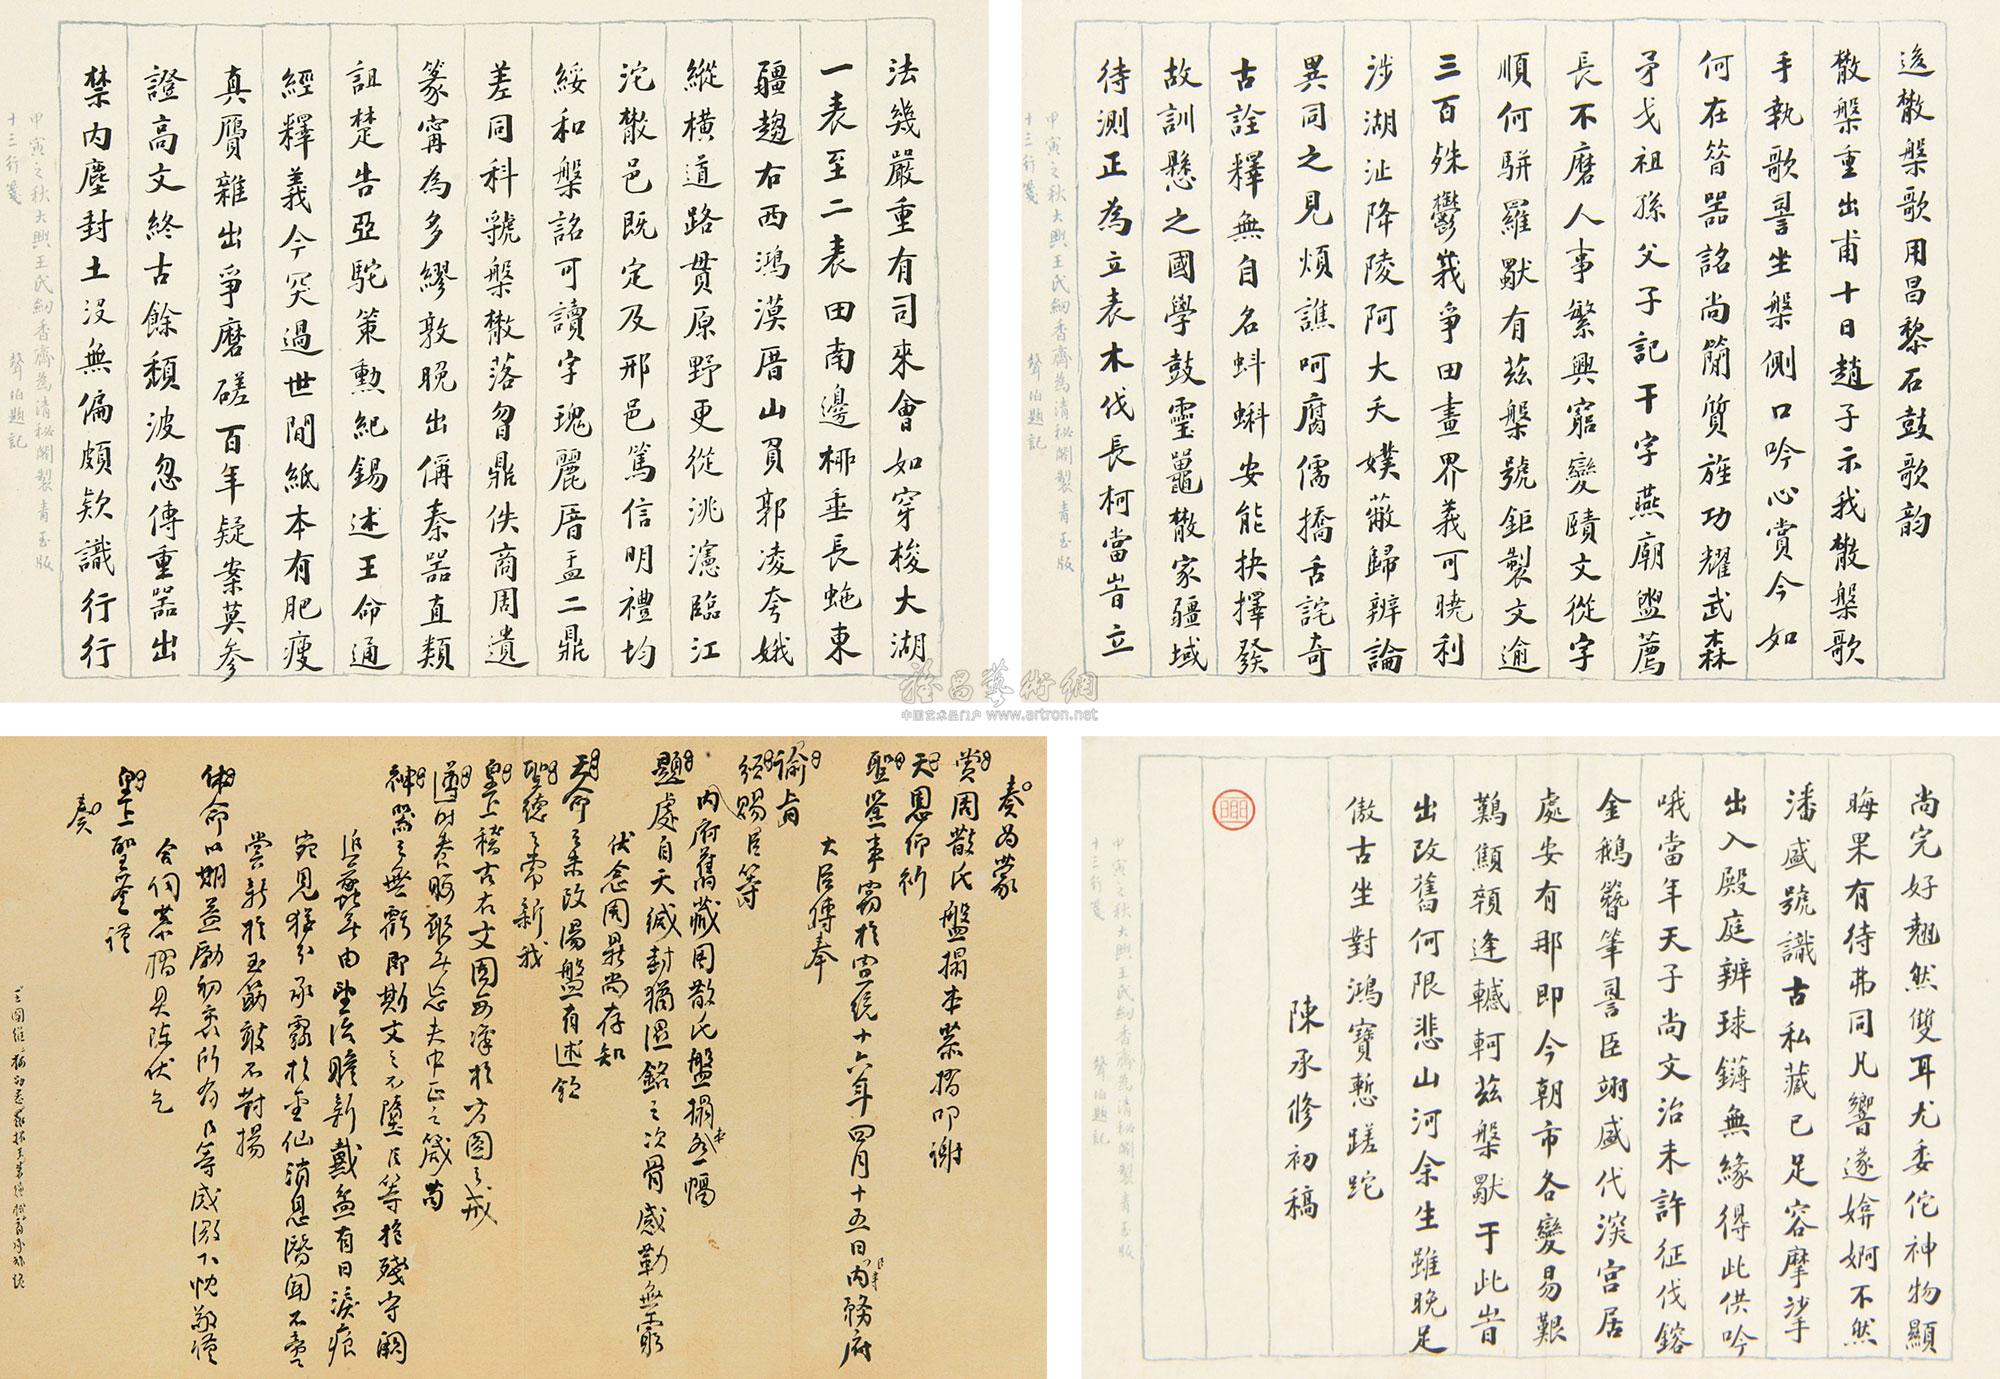 後散槃歌用昌黎石鼓歌韵
散槃重出甫十日趙子示我散槃歌
手執歌詈坐槃側口吟心賞今如
何在昔器銘尚簡質旌功耀武森
矛戈祖孫父子記干字燕廟盥薦
長不磨人事繁興窮變賾文從字
順何駢羅猷有茲槃號鉅製文逾
三百殊鬱峩爭田畫界義可曉利
涉湖沚降陵阿大夭墣蔽歸辨論
異同之見煩譙呵腐儒撟舌詫奇
古詮釋無自名蝌蚪安能抉擇發
故訓懸之國學鼓靈鼉散家疆域
待測正為立表木伐長柯當旹立
法幾嚴重有司來會如穿梭大湖
一表至二表田南邊栁垂長虵東
疆趨右西鴻漠厝山負郭凌夸娥
縱橫道路貫原野更從洮瀗臨江
沱散邑既定及邢邑篤信明禮均
綏和槃銘可讀字瑰麗厝盂二鼎
差同科虢槃散落曶鼎佚商周遺
篆寗為多繆敦晚出偁秦器直類
詛楚告亞駝策勲紀錫述王命通
經釋義今突過世間紙本有肥瘦
真贋雜出爭磨磋百年疑案莫參
證高文終古餘頹波忽傳重器出
禁內塵封土沒無偏頗欵識行行
尚完好翹然雙耳尤委佗神物顯
晦果有待弗同凡響遂媕婀不然
潘盛號識古私藏已足容摩挲
出入殿庭辨球鏄無緣得此供吟
哦當年天子尚文治未許征伐鎔
金鵝簪筆詈臣翊盛代深宮居
處安有那即今朝市各變易艱
鷬顛頖逢轗軻茲槃猷于此旹
出改舊何限悲山河余生雖晚足
傲古坐對鴻寶慙蹉跎
陳承修初稿
奏為蒙
賞周散氏盤搨本恭摺叩謝
天恩仰祈
聖鑒事竊於宣統十六年四月十五日內務府
大臣傳奉
諭旨
頒賜臣等
內府舊藏周散氏盤搨本一幅
題處自天緘封猶濕銘之次骨感勒無窮
伏念周鼎尚存知
天命之未改湯盤有述頌
聖德之常新我
皇上稽古右文園每凜於方圓之戒
神器之無虧即斯文之不墜臣等抱殘守闕
宛見猶分承露於金仙消息階聞不意
賞新於玉筯敢不對揚
休命以期益勵初衷所有臣等感激下忱敬謹
合同恭摺具陳伏乞
皇上聖鑒謹
奏
甲寅之秋大興王氏紉香齋為清秘閣製青玉版
十三行箋 聲伯題記
甲寅之秋大興王氏紉香齋為清秘閣製青玉版
十三行箋 聲伯題記
甲寅之秋大興王氏紉香齋為清秘閣製青玉版
十三行箋 聲伯題記
雅昌藝術網
中国艺术品门户 www.artron.net